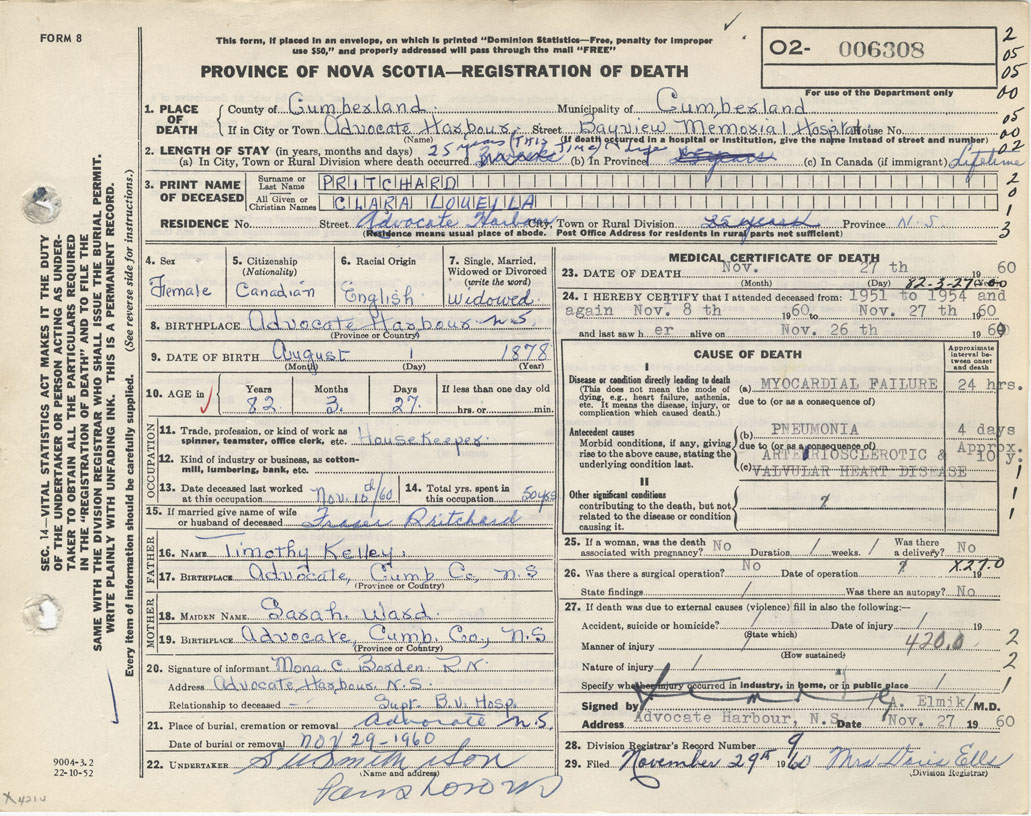 FORM 8
This form, if placed in an envelope, on which is printed "Dominion Statistics—Free, penalty for improper
use $50," and properly addressed will pass through the mail "FREE"
PROVINCE OF NOVA SCOTIA—REGISTRATION OF DEATH
O2- 006308
For use of the Department only
2
05
05
00
05
00
02
2
0
1
3
1. PLACE OF DEATH
County of Cumberland Municipality of Cumberland
If in City or Town Advocate Harbour, Street Bayview Memorial Hospital House No.
(Name) (If death occurred in a hospital or institution, give the name instead of street and number)
2. LENGTH OF STAY (in years, months and days) 25 years (This time)
(a) In City, Town or Rural Division where death occurred (b) In Province Life 25 years (c) In Canada (if immigrant) Lifetime
3. PRINT NAME OF DECEASED
Surname or Last Name PRITCHARD
All Given or Christian Names CLARA LOUELLA
RESIDENCE No. Street Advocate Harbour City, Town or Rural Division 25 years Province N.S.
(Residence means usual place of abode. Post Office Address for residents in rural parts not sufficient)
4. Sex Female
5. Citizenship (Nationality) Canadian
6. Racial Origin English
7. Single, Married, Widowed or Divorced (write the word) Widowed
8. BIRTHPLACE Advocate Harbour N.S.
(Province or Country)
9. DATE OF BIRTH August 1 1878
(Month) (Day) (Year)
10. AGE in Years 82 Months 3 Days 27 If less than one day old hrs. or min.
OCCUPATION
11. Trade, profession, or kind of work as
spinner, teamster, office clerk, etc. Housekeeper
12. Kind of industry or business, as cotton-
mill, lumbering, bank, etc.
13. Date deceased last worked
at this occupation Nov. 15th/60
14. Total yrs. spent in
this occupation 50 yrs
15. If married give name of wife
or husband of deceased Fraser Pritchard
FATHER
16. NAME Timothy Kelley
17. BIRTHPLACE Advocate, Cumb Co, N.S
(Province or Country)
MOTHER
18. MAIDEN NAME Sarah Ward
19. BIRTHPLACE Advocate, Cumb. Co., N.S
(Province or Country)
20. Signature of informant Mona C Borden R.N.
Address Advocate Harbour, N.S.
Relationship to deceased Supt. B.V. Hosp.
21. Place of burial, cremation or removal Advocate N.S
Date of burial or removal Nov 29-1960
22. UNDERTAKER Smith Son
(Name and address)
MEDICAL CERTIFICATE OF DEATH
23. DATE OF DEATH Nov. 27 th 1960
(Month) (Day) 82-3-27
24. I HEREBY CERTIFY that I attended deceased from: 1951 to 1954 and
again Nov. 8 th 1960 to Nov. 27 th 1960
and last saw her alive on Nov. 26 th 1960
CAUSE OF DEATH
Approximate interval between onset and death
I
Disease or condition directly leading to death
(This does not mean the mode of
dying, e.g., heart failure, asthenia,
etc. It means the disease, injury, or
complication which caused death.)
(a) MYOCARDIAL FAILURE 24 hrs.
due to (or as a consequence of)
Antecedent causes
Morbid conditions, if any, giving
rise to the above cause, stating the
underlying condition last.
(b) PNEUMONIA 4 days
due to (or as a consequence of) Approx.
ARTERIOSCLEROTIC & 10 y.
(c) VALVULAR HEART DISEASE
II
Other significant conditions
contributing to the death, but not
related to the disease or condition
causing it.
1
1
1
25. If a woman, was the death
associated with pregnancy? No Duration / weeks. / Was there
a delivery? No
26. Was there a surgical operation? No Date of operation 19 X27.0
State findings / Was there an autopsy? No
27. If death was due to external causes (violence) fill in also the following:—
Accident, suicide or homicide? / Date of injury / 19
(State which)
Manner of injury / 420.0
(How sustained)
Nature of injury /
Specify whether injury occurred in industry, in home, or in public place /
2
2
1
Signed by A. Elmik/M.D.
Address Advocate Harbour, N.S. Date Nov. 27 1960
28. Division Registrar's Record Number 9
29. Filed November 29th 1960 Mrs Doris Ells
(Division Registrar)
SEC. 14—VITAL STATISTICS ACT MAKES IT THE DUTY
OF THE UNDERTAKER OR PERSON ACTING AS UNDER-
TAKER TO OBTAIN ALL THE PARTICULARS REQUIRED
IN THE "REGISTRATION OF DEATH" AND TO FILE THE
SAME WITH THE DIVISION REGISTRAR WHO SHALL ISSUE THE BURIAL PERMIT.
WRITE PLAINLY WITH UNFADING INK. THIS IS A PERMANENT RECORD.
Every item of information should be carefully supplied. (See reverse side for instructions.)
9004-3.2
22-10-52